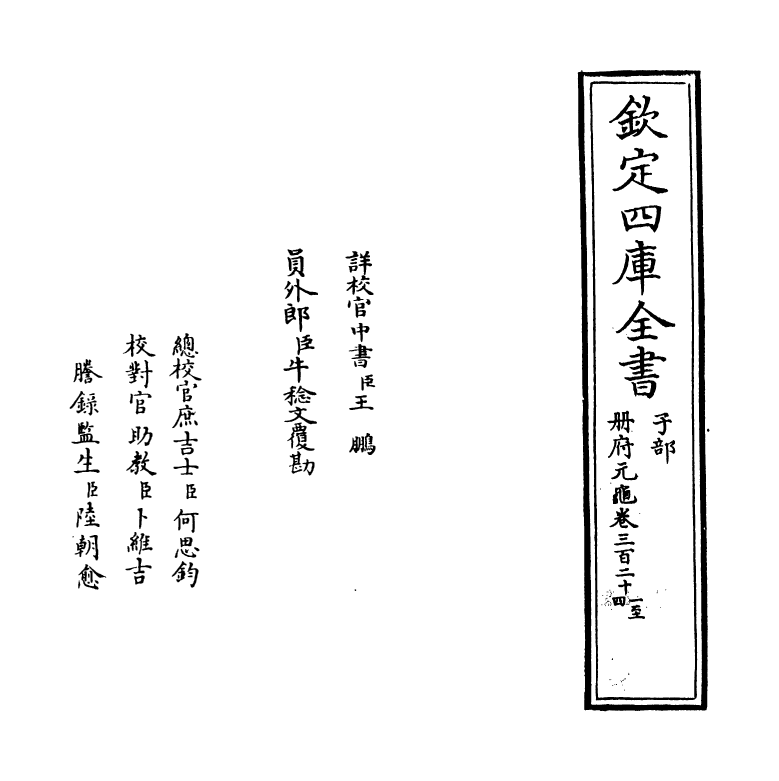 欽定四庫全書
子部
册府元龜卷三百二十一至四
詳校官中書臣王鵬
員外郎臣牛稔文覆勘
總校官庶吉士臣何思鈞
校對官助教臣卜維吉
謄錄監生臣陸朝愈